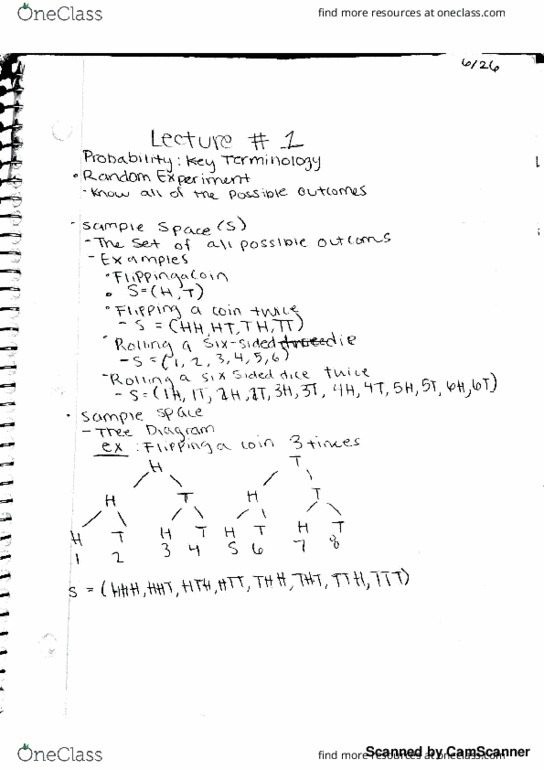 OneClass
find more resources at oneclass.com
6/26
Lecture # 1
Probability: Key Terminology
• Random Experiment
- Know all of the possible outcomes
- Sample Space (S)
- The set of all possible outcoms
- Examples
• Flipping a coin
• S=(H,T)
• Flipping a coin twice
- S = (HH, HT, TH, TT)
Rolling a six-sided die
- S = (1, 2, 3, 4, 5, 6)
- Rolling a six sided dice twice
- S=(1H, 1T, 2H, 2T, 3H, 3T, 4H, 4T, 5H, 5T, 6H, 6T)
• Sample space
- Tree Diagram
ex: Flipping a coin 3 times
H T
H T H T
H T H T H T H T
1 2 3 4 5 6 7 8
S = (HHH, HHT, HTH, HTT, THH, THT, TTH, TTT)
OneClass
find more resources at oneclass.com
Scanned by CamScanner